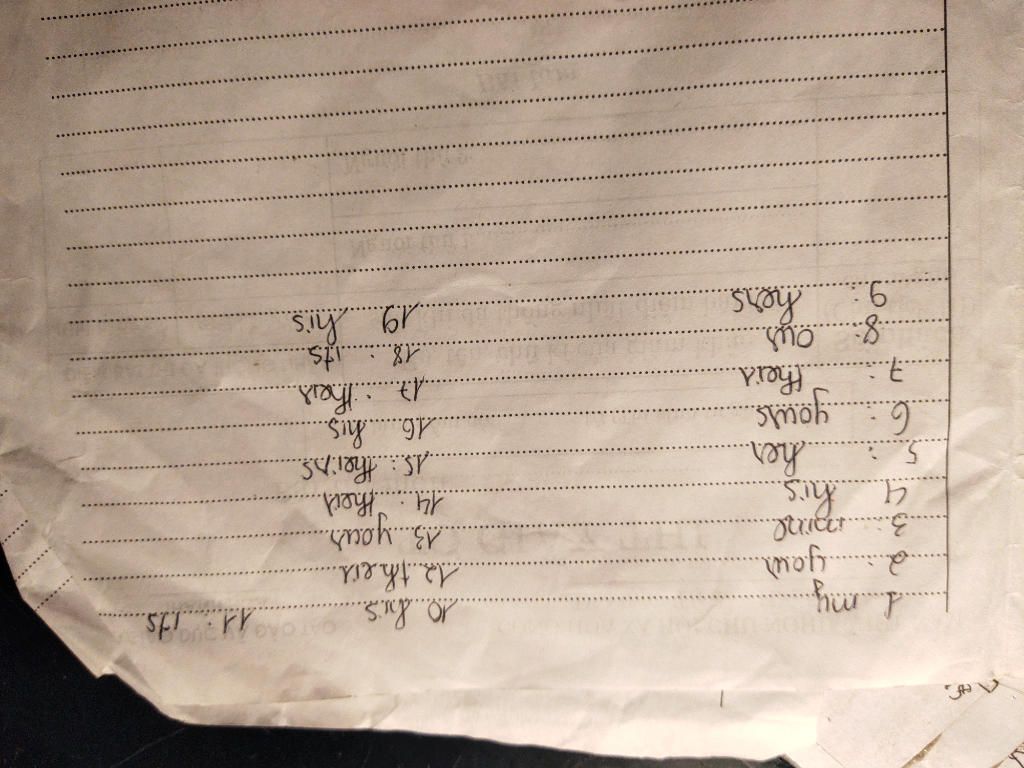 1 my 10 his 11: its
2: your 12 their
3: mine 13 your
4 his 14: their
5: her 15: theirs
6: yours 16 his
7: their 17: their
8: our 18: its
9: hers 19 his